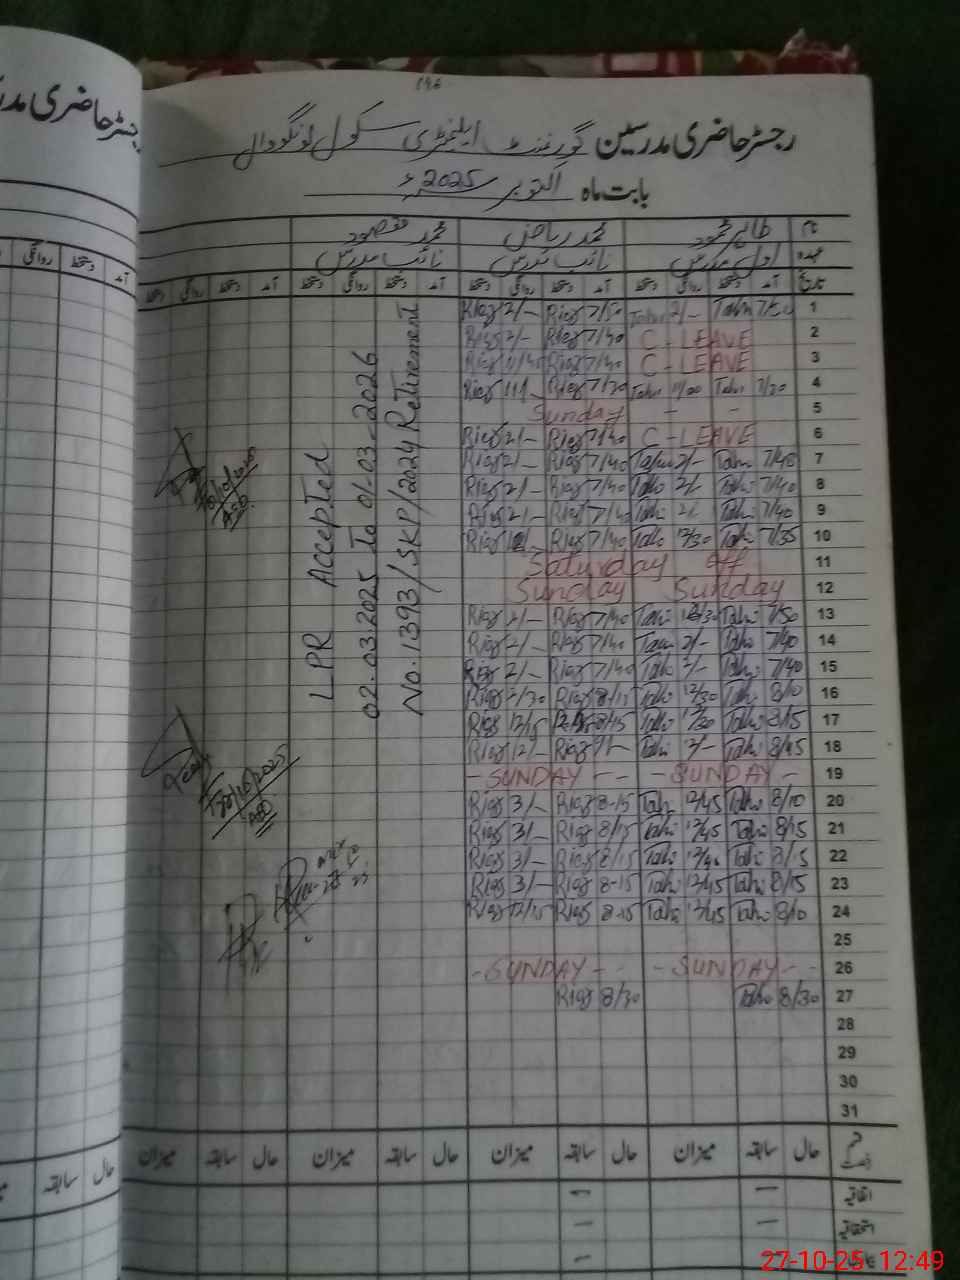 رجسٹر حاضری مدرسین گورنمنٹ ایلیمنٹری سکول لونگووال
بابت ماہ اکتوبر 2025ء
نام طاہر محمود محمد ریاض محمد مقصود
عہدہ اول مدرس نائب مدرس نائب مدرس
تاریخ آمد دستخط روانگی دستخط آمد دستخط روانگی دستخط آمد دستخط روانگی دستخط آمد دستخط روانگی دستخط
Riaz 2/- Riaz 7/50 Tahir 2/- Tahir 7/50 1
Riaz 2/- Riaz 7/40 C - LEAVE 2
Riaz Riaz 7/40 C - LEAVE 3
Riaz 11/- Riaz 7/30 Tahir 11/00 Tahir 7/30 4
Sunday - - 5
Riaz 2/- Riaz 7/40 C - LEAVE 6
Riaz 2/- Riaz 7/40 Tahir 2/- Tahir 7/40 7
Riaz 2/- Riaz 7/40 Tahir 2/- Tahir 7/40 8
Riaz 2/- Riaz 7/40 Tahir 2/- Tahir 7/40 9
Riaz Riaz 7/40 Tahir 12/30 Tahir 7/35 10
Saturday off 11
Sunday Sunday 12
Riaz 2/- Riaz 7/40 Tahir 12/30 Tahir 7/50 13
Riaz 2/- Riaz 7/40 Tahir 2/- Tahir 7/40 14
Riaz 2/- Riaz 7/40 Tahir 2/- Tahir 7/40 15
Riaz 2/30 Riaz 8/15 Tahir 12/30 Tahir 8/10 16
Riaz 12/15 Riaz 8/15 Tahir 12/20 Tahir 8/15 17
Riaz 12/- Riaz Tahir 12/- Tahir 8/45 18
- SUNDAY - - - SUNDAY - 19
Riaz 3/- Riaz 8-15 Tahir 12/45 Tahir 8/10 20
Riaz 3/- Riaz 8/15 Tahir 12/45 Tahir 8/15 21
Riaz 3/- Riaz 8/15 Tahir 12/45 Tahir 8/15 22
Riaz 3/- Riaz 8-15 Tahir 12/45 Tahir 8/15 23
Riaz 12/15 Riaz 8-15 Tahir 12/45 Tahir 8/10 24
25
- SUNDAY - - - SUNDAY - - 26
Riaz 8/30 Tahir 8/30 27
28
29
30
31
LPR Accepted
02.03.2025 To 01-03-2026
No.1393/SKP/2024 Retirement
قسم رخصت حال سابقہ میزان حال سابقہ میزان حال سابقہ میزان حال سابقہ میزان
اتفاقیہ - -
استحقاقیہ - -
- -
رجسٹر حاضری
آمد دستخط روانگی
حال سابقہ
27-10-25 12:49